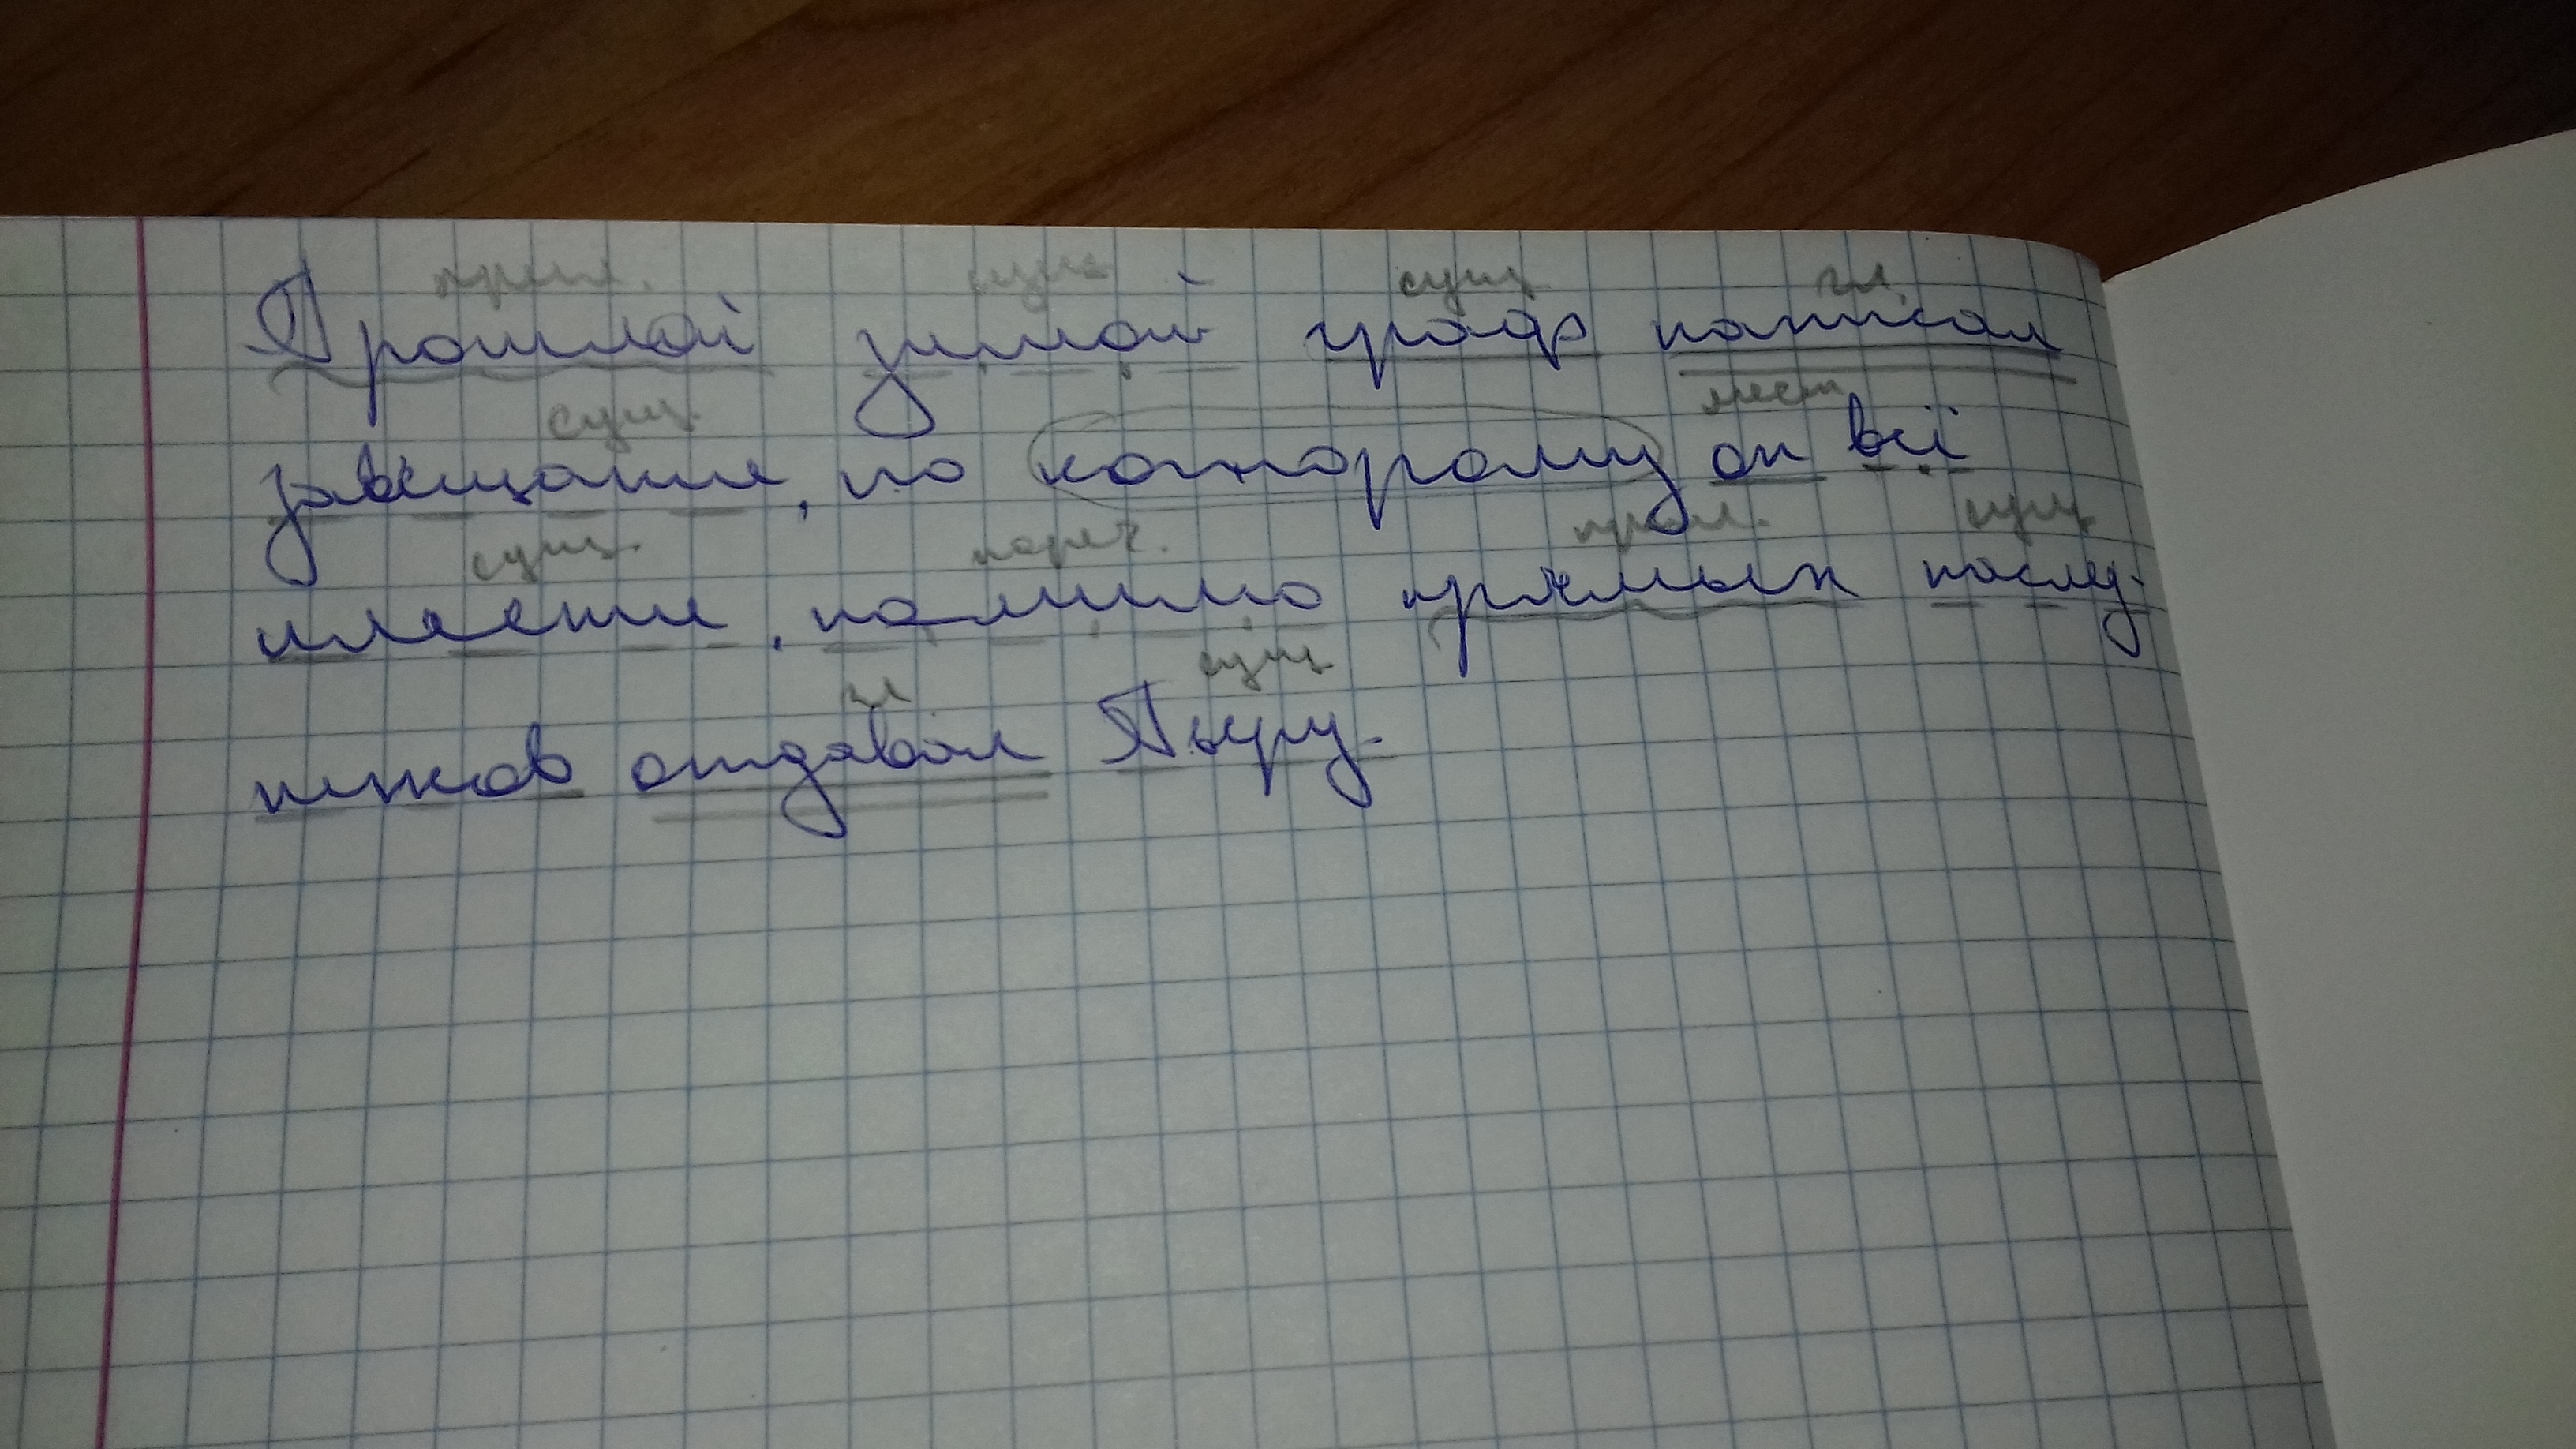 прил. сущ сущ гл.
Прошлой зимой граф написал
сущ. мест
завещание, по которому он всё
сущ. нареч. прил. сущ
имение, помимо прямых наслед-
гл сущ
ников отдавал Пьеру.